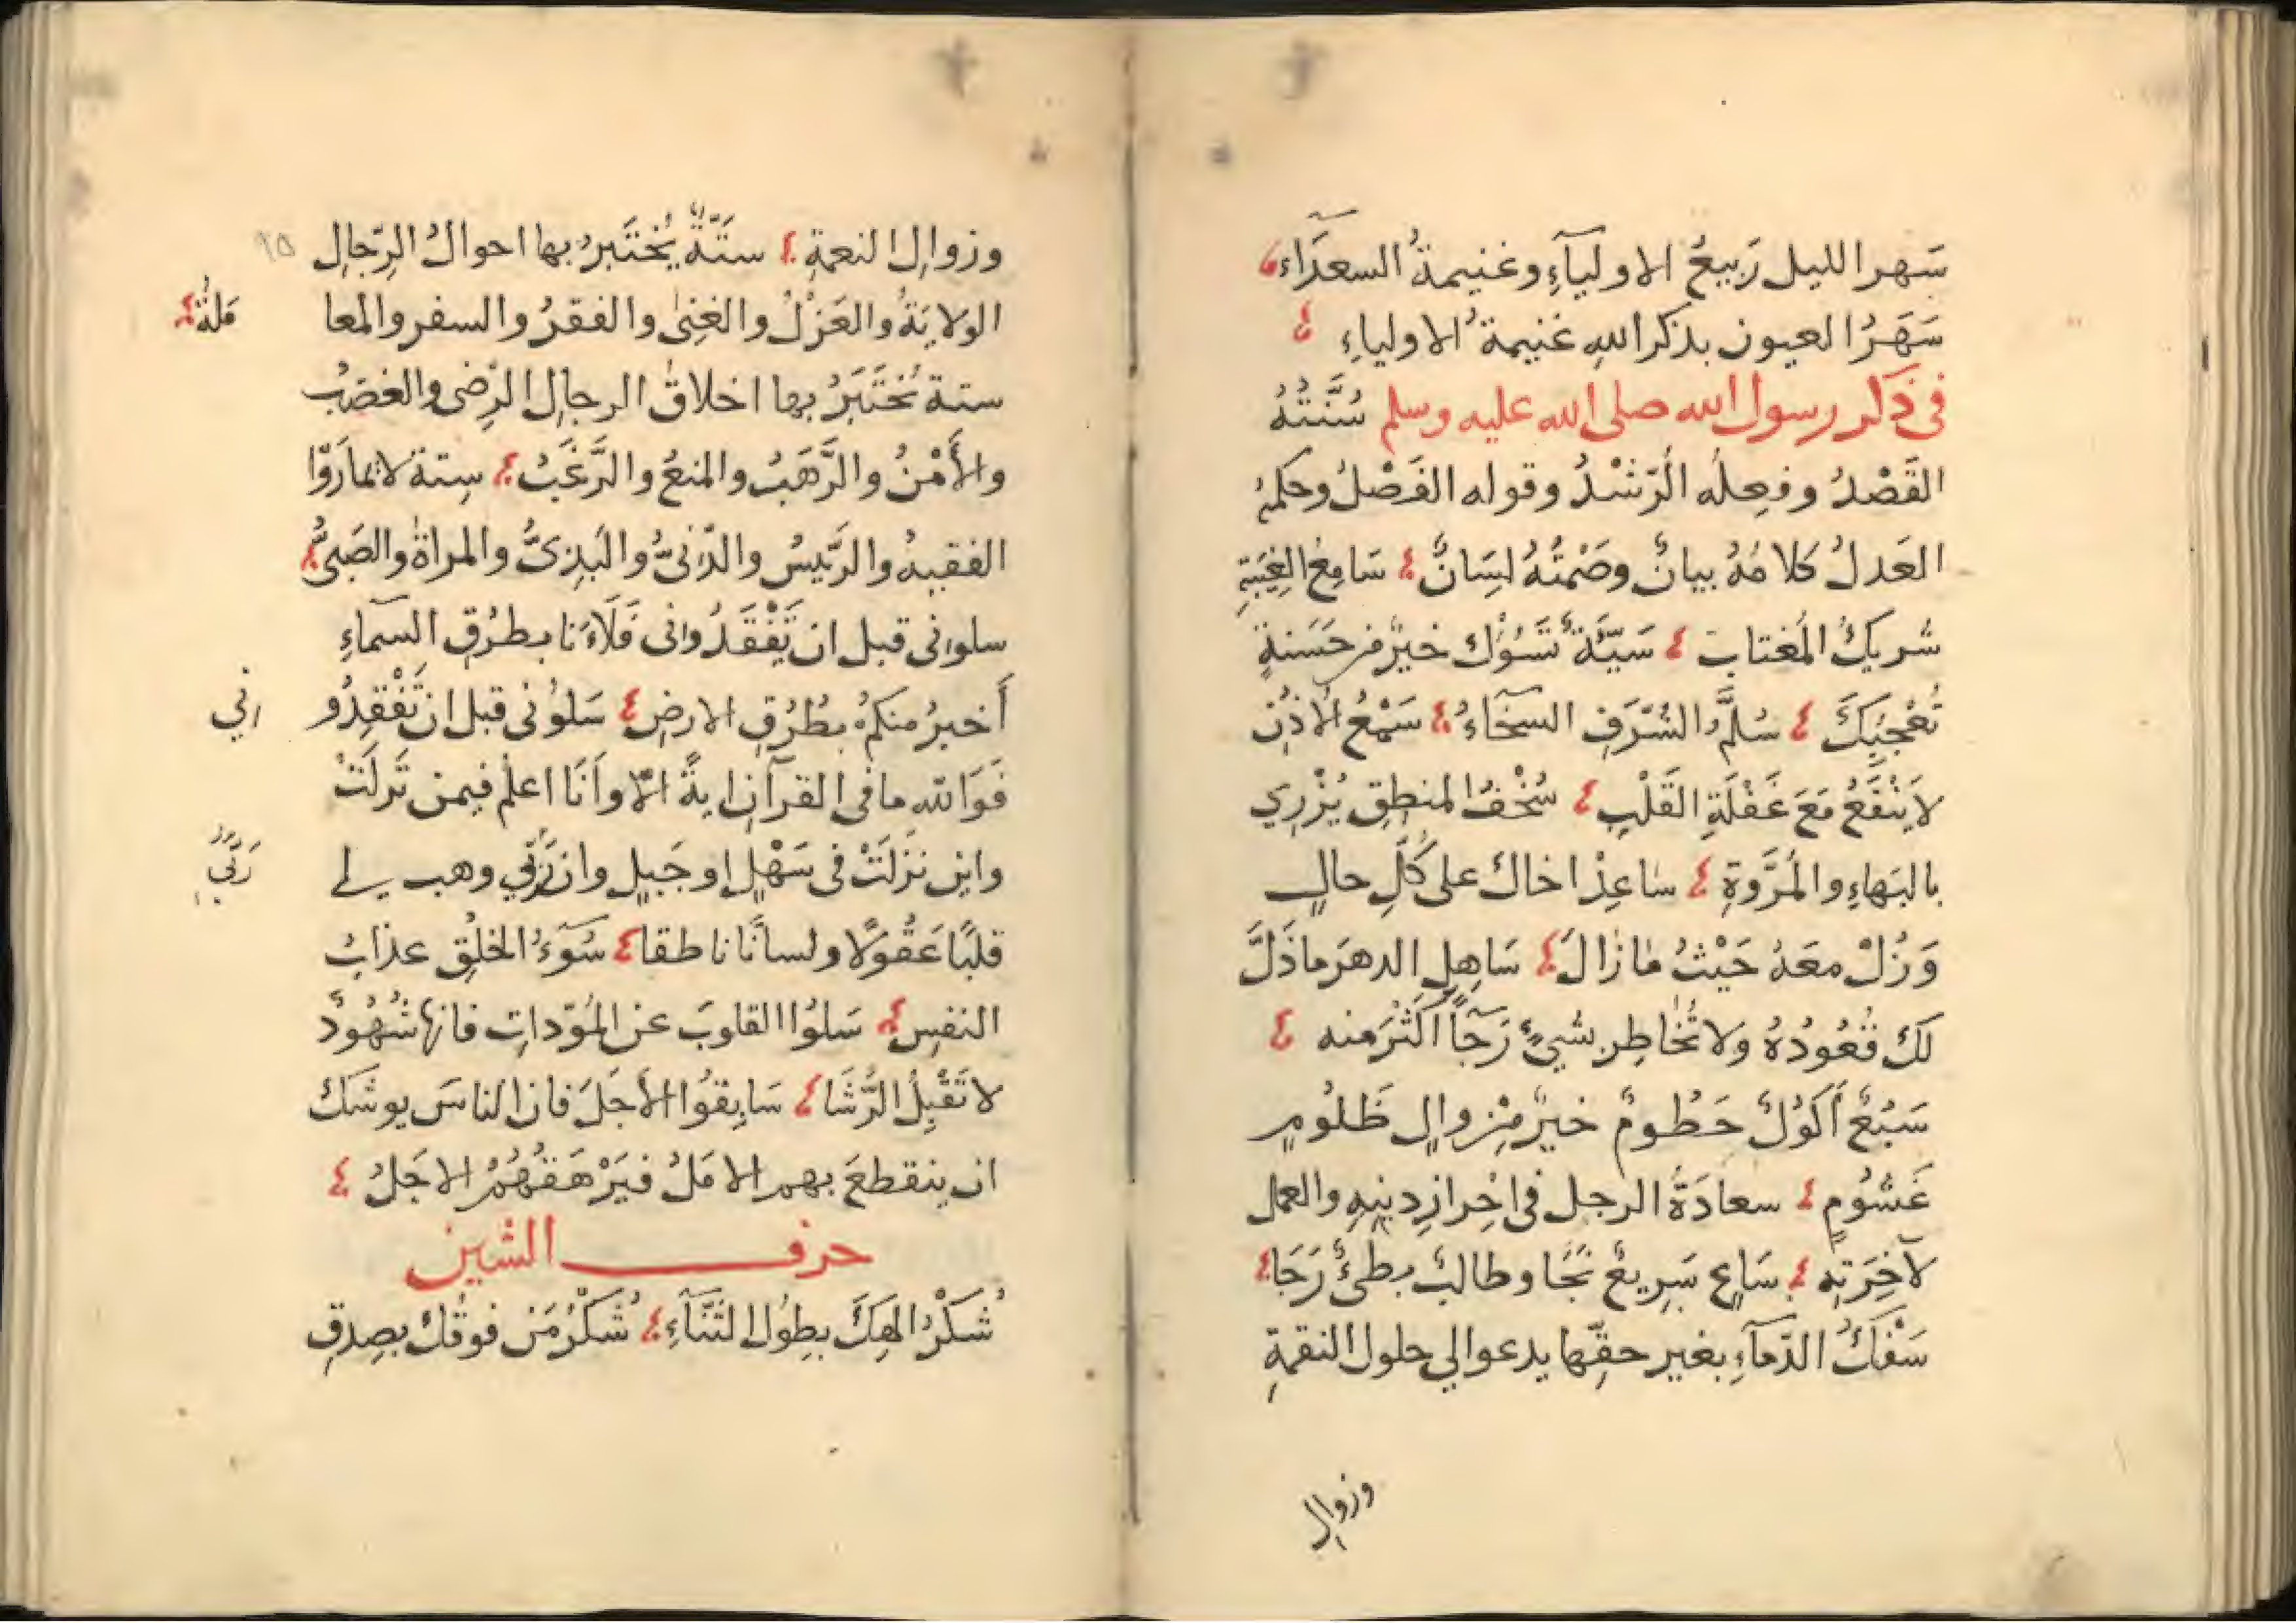 سَهر الليل رَبيعُ الاوليآءِ وغنيمةُ السعدَاء
سَهَرُ العيون بذكر اللهِ غنيمةُ الاولياءِ
فى ذكر رسول الله صلى الله عليه وسلم سُنَّتُهُ
القَصْدُ وفِعلُه الرّشْدُ وقوله الفَصْلُ وحكمهُ
العَدلُ كلامُهُ بيانٌ وصَمْتُهُ لسَانٌ سَامِعُ الغِيْبَةِ
شريكُ المُغتابِ سَيّئَةٌ تَسُؤُكَ خيرٌ من حَسَنةٍ
تُعْجِبُكَ سُلَّمُ الشّرَفِ السخَاءُ سَمْعُ الأذُنِ
لا يَنْفَعُ مَعَ غَفْلَةِ القَلْبِ سُخْفُ المنطِقِ يُزْرِي
بالبَهاءِ والمُرُوَّةِ ساعِدْ اخاكَ على كُلِّ حالٍ
وَزُلْ معَهُ حَيْثُ مَا زَالَ سَاهِلِ الدهرَ ما ذَلَّ
لَكَ قُعُودُهُ ولا تُخاطِر بشيءٍ رَجآءَ اكثَرَ منه
سَبُعٌ أكُولٌ حَطُومٌ خيرٌ مِن والٍ ظَلُومٍ
غَشُومٍ سعادَةُ الرجل فى احْرازِ دينِهِ والعمل
لآخِرَتِهِ سَاعٍ سَرِيعٌ نَجَا وطالبٌ بطئٌ رَجَا
سَفْكُ الدّمآءِ بغير حقّها يدعو الي حلول النقمةِ
وزوالِ
وزوالِ النعمةِ ستّةٌ يُخْتَبَرُ بها احوالُ الرّجالِ
الولايَةُ والعَزْلُ والغِنىٰ والفقرُ والسفر والمعا
مَلَةُ
ستة تُخْتَبَرُ بها اخلاقُ الرجالِ الرّضى والغضبُ
والأَمْنُ والرَّهَبُ والمنعُ والرَّغَبُ سِتة لا تمارَوّا
الفقيهُ والرَّئيسُ والدّنىُّ والبَذِىُّ والمراةُ والصَبىُّ
سلونى قبل ان تَفْقَدُوانى فَلَاَنَا بطُرُقِ السماءِ
أَخبرُ منكمُ بطُرُقِ الارضِ سَلُوْنى قبل ان تَفْقِدُو
نِي
فَوَالله ما فى القرآن ايةً الّا وَاَنَا اعلمُ فيمن نَزلَتْ
واين نزلَتْ فى سَهْلٍ او جَبلٍ وان رَبّي وهب لے
رَبّي
قلبًا عَقُولًا ولسانًا ناطقا سُوءُ الخلُقِ عذابُ
النفسِ سَلُوا القلوبَ عن المُوَدّاتِ فانها شُهُودٌ
لا تَقْبِلُ الرُّشَا سَابِقُوا الأجَلَ فان الناسَ يوشكُ
ان ينقطعَ بهم الامَلُ فيَرْهَقَهُمُ الاجَلُ
حرف الشين
شُكْرُ الهِكَ بطُولِ الثّنآءِ شُكْرُ مَن فوقَكَ بصِدقِ